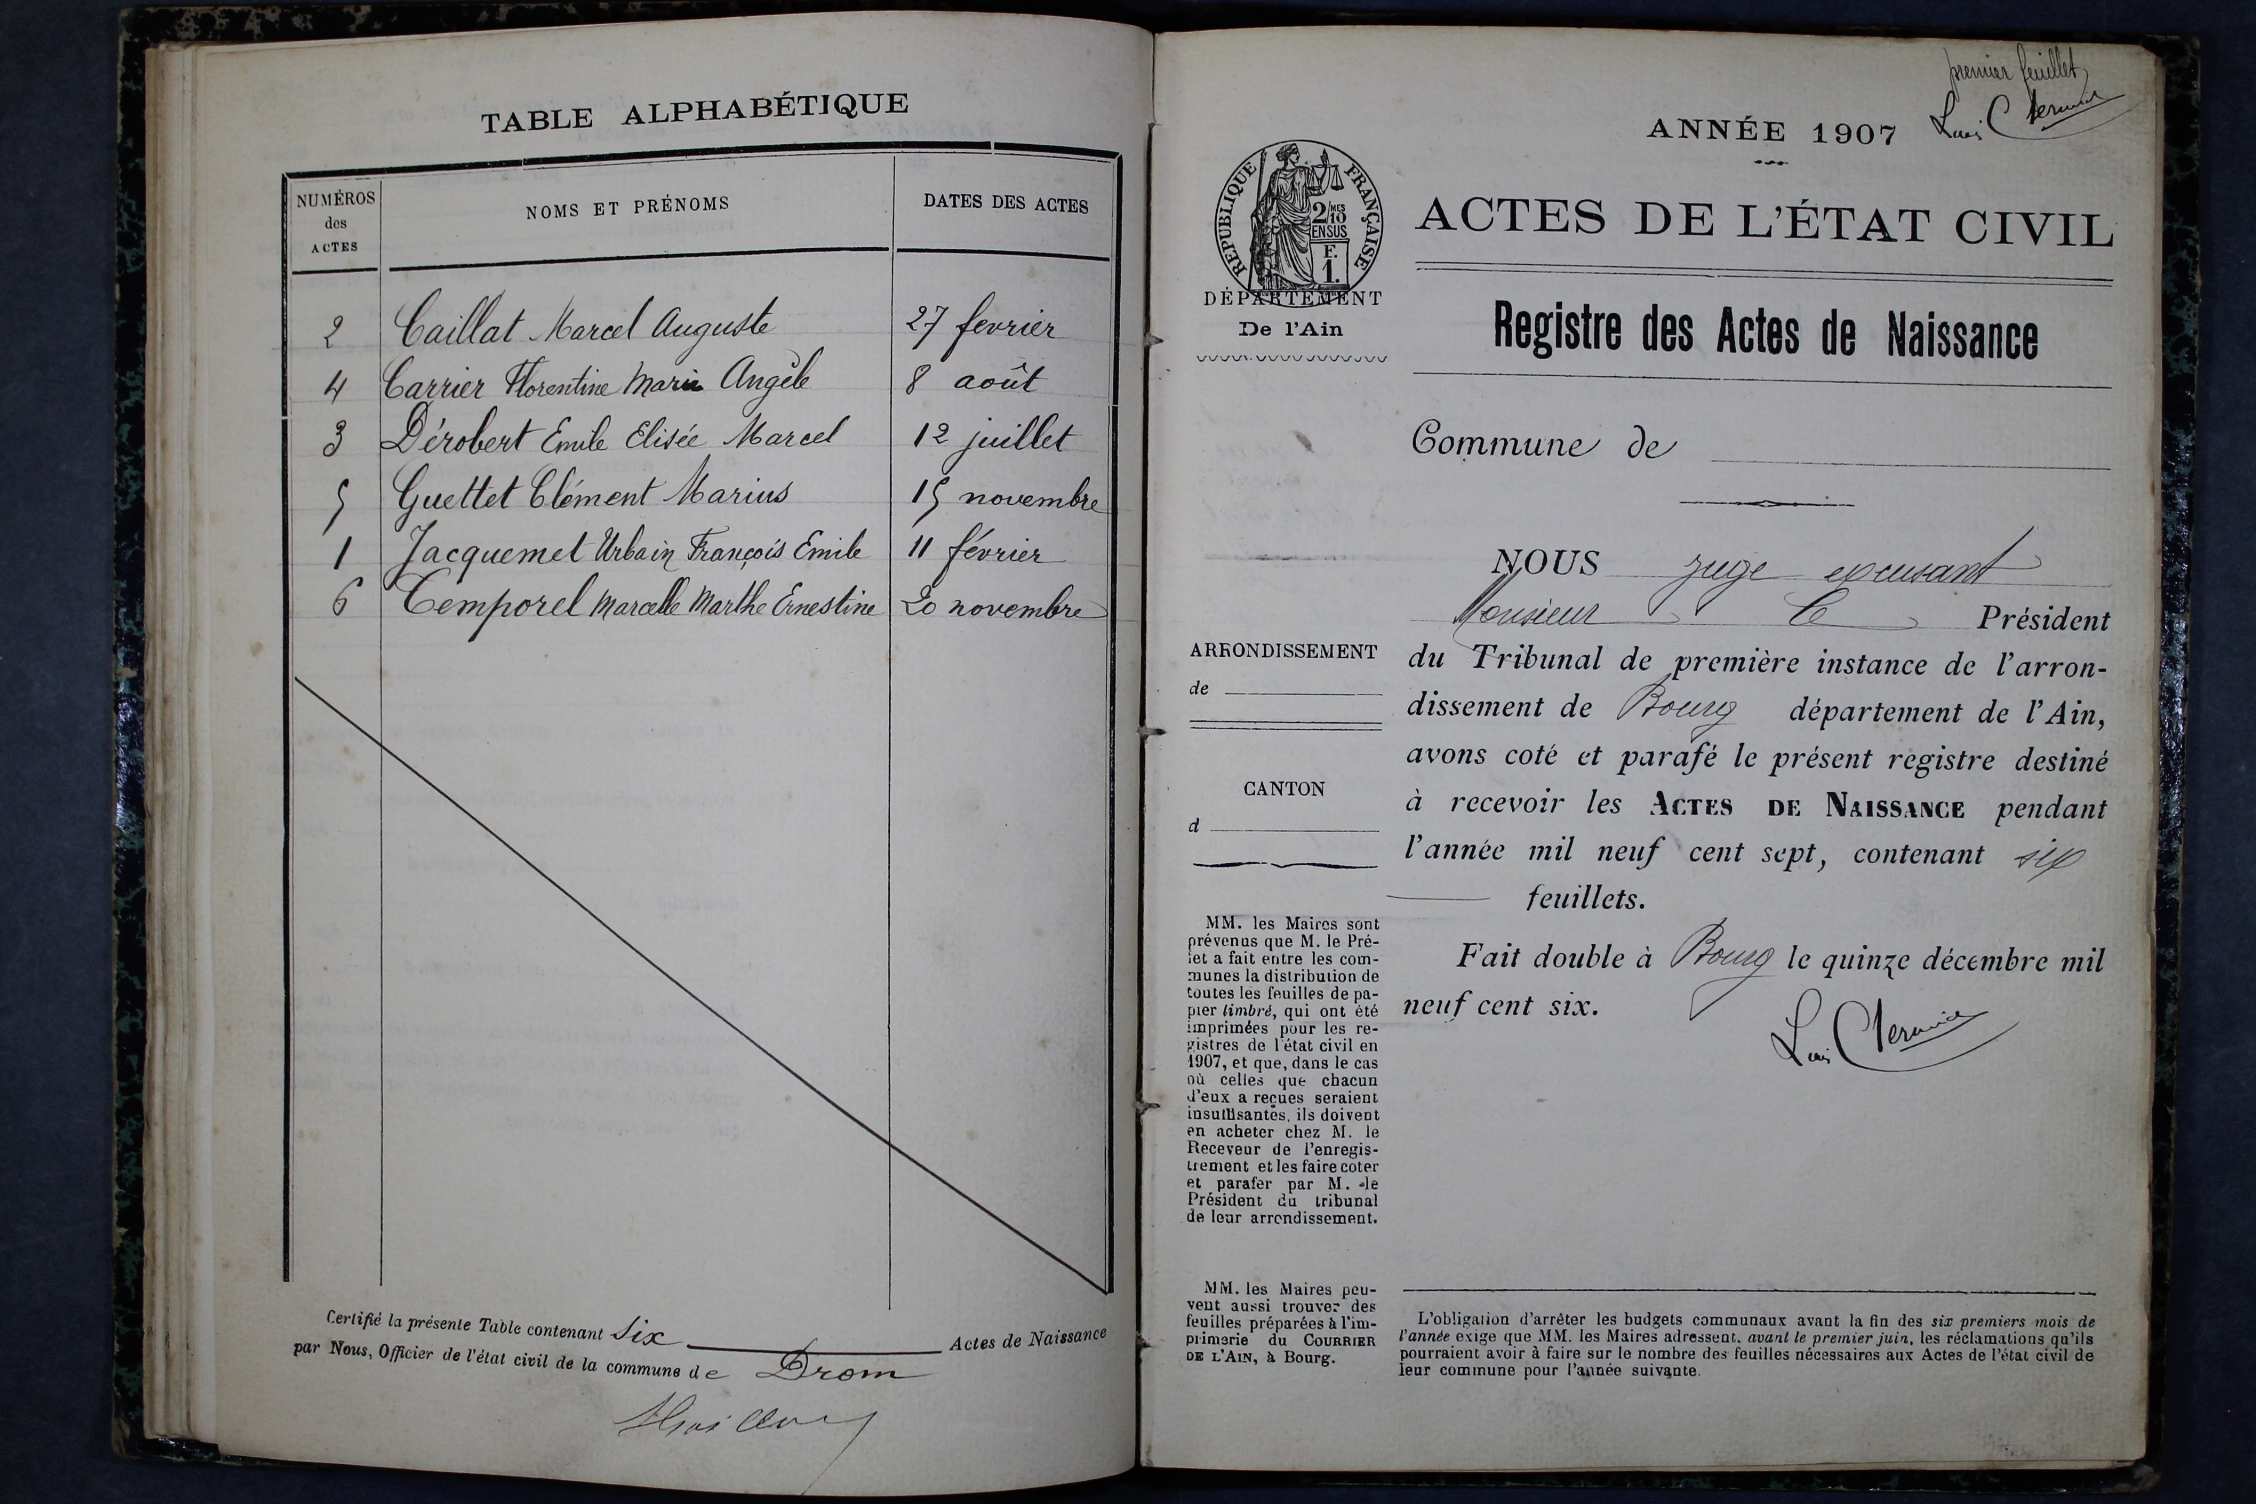 TABLE ALPHABÉTIQUE
NUMÉROS des ACTES NOMS ET PRÉNOMS DATES DES ACTES
2 Caillat Marcel Auguste 27 fevrier
4 Carrier Florentine Marie Angèle 8 août
3 Dérobert Emile Elisée Marcel 12 juillet
5 Guettet Clément Marius 15 novembre
1 Jacquemet Urbain François Emile 11 février
6 Temporel Marcelle Marthe Ernestine 20 novembre
Certifié la présente Table contenant Six Actes de Naissance
par Nous, Officier de l'état civil de la commune de Drom
premier feuillet
Louis
ANNÉE 1907
RÉPUBLIQUE FRANÇAISE
2/MES
10
EN SUS
F.
1.
DÉPARTEMENT
De l'Ain
ACTES DE L'ÉTAT CIVIL
Registre des Actes de Naissance
Commune de
ARRONDISSEMENT
de
CANTON
d
MM. les Maires sont
prévenus que M. le Pré-
fet a fait entre les com-
munes la distribution de
toutes les feuilles de pa-
pier timbré, qui ont été
imprimées pour les re-
gistres de l'état civil en
1907, et que, dans le cas
où celles que chacun
d'eux a reçues seraient
insuffisantes, ils doivent
en acheter chez M. le
Receveur de l'enregis-
trement et les faire coter
et parafer par M. le
Président du tribunal
de leur arrondissement.
MM. les Maires peu-
vent aussi trouver des
feuilles préparées à l'im-
primerie du COURRIER
DE L'AIN, à Bourg.
NOUS juge excusant
Monsieur le Président
du Tribunal de première instance de l'arron-
dissement de Bourg département de l'Ain,
avons coté et parafé le présent registre destiné
à recevoir les ACTES DE NAISSANCE pendant
l'année mil neuf cent sept, contenant six
feuillets.
Fait double à Bourg le quinze décembre mil
neuf cent six.
Louis
L'obligation d'arrêter les budgets communaux avant la fin des six premiers mois de
l'année exige que MM. les Maires adressent, avant le premier juin, les réclamations qu'ils
pourraient avoir à faire sur le nombre des feuilles nécessaires aux Actes de l'état civil de
leur commune pour l'année suivante.